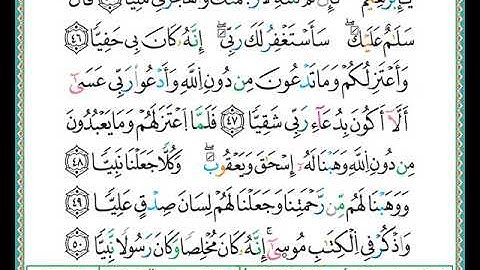 يَٰٓإِبْرَٰهِيمُ وَٱهْجُرْنِى مَلِيًّا قَالَ
سَلَٰمٌ عَلَيْكَ ۖ سَأَسْتَغْفِرُ لَكَ رَبِّىٓ ۖ إِنَّهُۥ كَانَ بِى حَفِيًّا ٤٦
وَأَعْتَزِلُكُمْ وَمَا تَدْعُونَ مِن دُونِ ٱللَّهِ وَأَدْعُوا۟ رَبِّى عَسَىٰٓ
أَلَّآ أَكُونَ بِدُعَآءِ رَبِّى شَقِيًّا ٤٧ فَلَمَّا ٱعْتَزَلَهُمْ وَمَا يَعْبُدُونَ
مِن دُونِ ٱللَّهِ وَهَبْنَا لَهُۥٓ إِسْحَٰقَ وَيَعْقُوبَ ۖ وَكُلًّا جَعَلْنَا نَبِيًّا ٤٨
وَوَهَبْنَا لَهُم مِّن رَّحْمَتِنَا وَجَعَلْنَا لَهُمْ لِسَانَ صِدْقٍ عَلِيًّا ٤٩
وَٱذْكُرْ فِى ٱلْكِتَٰبِ مُوسَىٰٓ ۚ إِنَّهُۥ كَانَ مُخْلَصًا وَكَانَ رَسُولًا نَّبِيًّا ٥٠